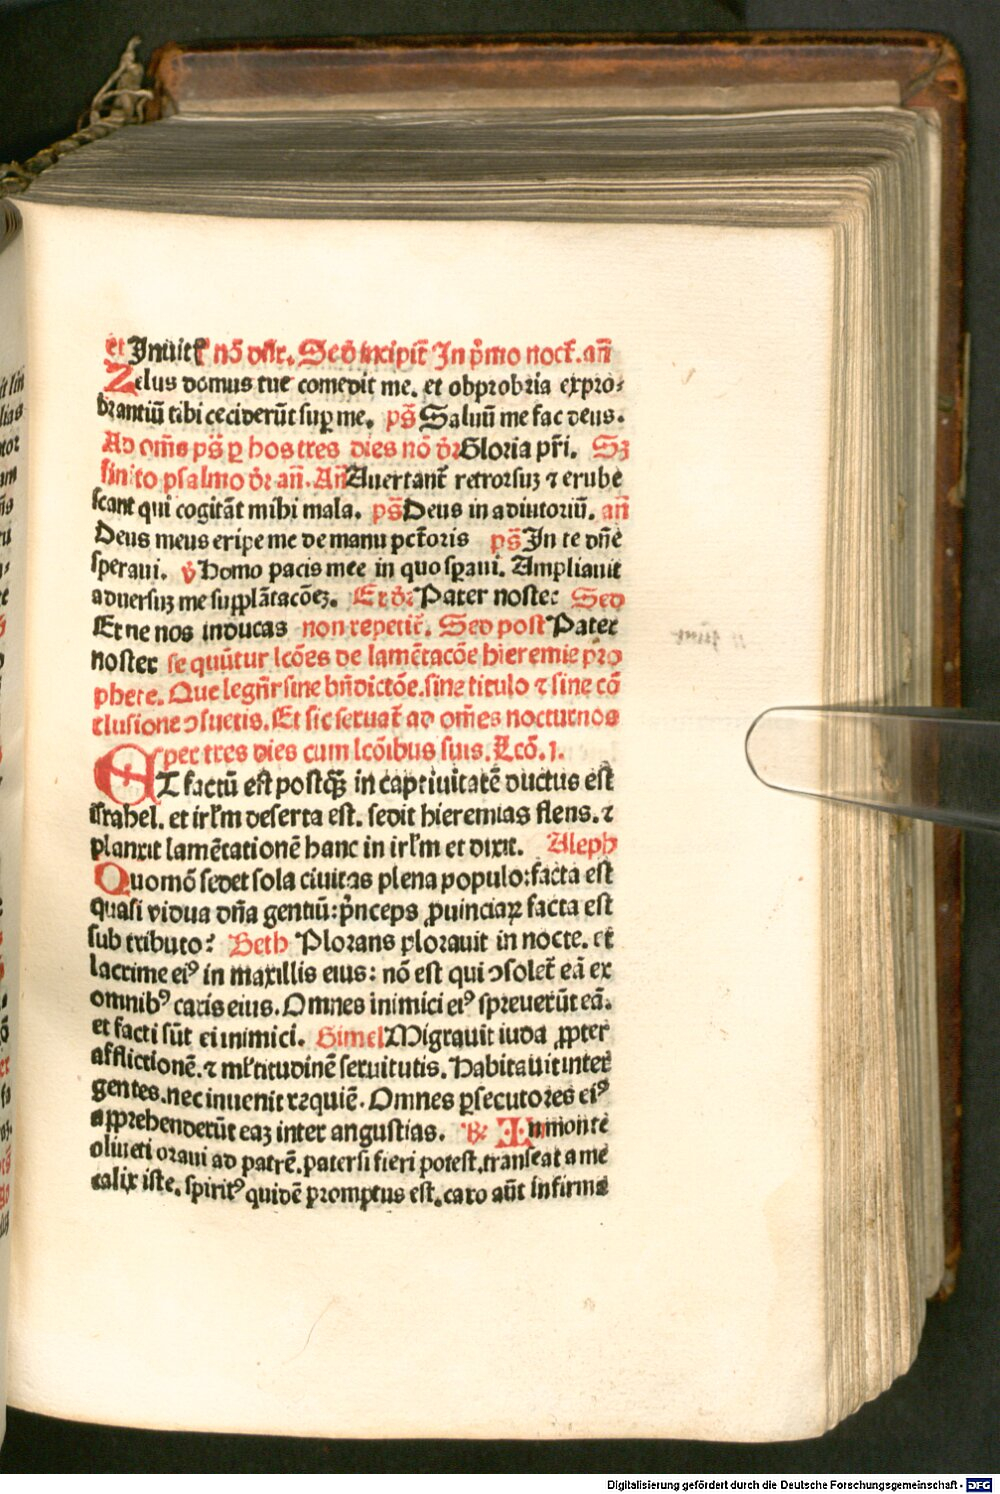 et Inuitꝭ nō dr̄. Sed incipit̄ In p̄mo noct̄. an̄
Zelus domus tue comedit me. et obprobria expro⸗
brantiū tibi ceciderūt suꝑ me. ps̄ Saluū me fac deus.
Ad om̄s ps̄ ꝑ hos tres dies nō dr̄ Gloria pr̄i. Sꝫ
finito psalmo dr̄ an̄. An̄ Auertant̄ retrorsuꝫ ⁊ erube
scant qui cogitāt mihi mala. ps̄ Deus in adiutoriū. an̄
Deus meus eripe me de manu pct̄oris ps̄ In te dn̄e
speraui. v̄ Homo pacis mee in quo sꝑaui. Ampliauit
aduersuꝫ me supplātacōeꝫ. Et dr̄ Pater noster Sed
Et ne nos inducas non repetit̄. Sed post Pater
noster se quūtur lcōes de lamētacōe hieremie pro
phete. Que legūt̄r sine bn̄dictōe. sine titulo ⁊ sine cō
clusione ↄsuetis. Et sic seruat̄ ad om̄es nocturnos
per tres dies cum lcōibus suis. Lcō. 1.
ET factū est postq̄ꝫ in captiuitatē ductus est
israhel. et irl̄m deserta est. sedit hieremias flens. ⁊
planxit lamētationē hanc in irl̄m et dixit. Aleph
Quomō sedet sola ciuitas plena populo: facta est
quasi vidua dn̄a gentiū: p̄nceps ꝓuinciaꝝ facta est
sub tributo? Beth Plorans plorauit in nocte. et
lacrime eiꝰ in maxillis eius: nō est qui ↄsolet̄ eā ex
omnibꝰ caris eius. Omnes inimici eiꝰ spreuerūt eā.
et facti sūt ei inimici. Gimel Migrauit iuda ꝓpter
afflictionē. ⁊ ml̄titudinē seruitutis. Habitauit inter
gentes. nec inuenit requiē. Omnes ꝑsecutores eiꝰ
apprehenderūt eaꝫ inter angustias. ℟ In monte
oliueti oraui ad patrē. pater si fieri potest. transeat a me
calix iste. spiritꝰ quidē promptus est. caro aūt infirma
Digitalisierung gefördert durch die Deutsche Forschungsgemeinschaft - DFG